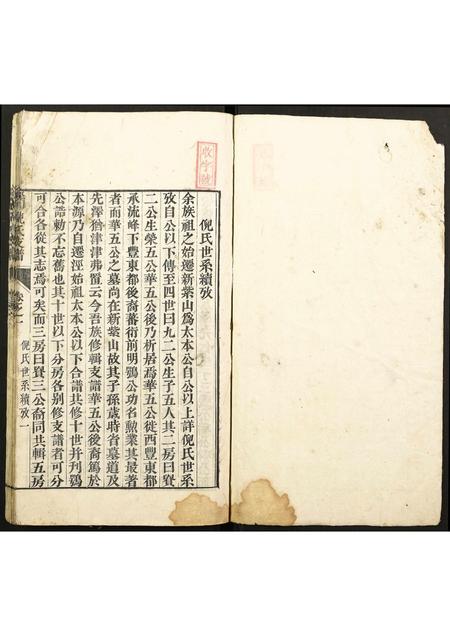 倪氏世系續攷
余族祖之始遷新紫山為太本公自公以上詳倪氏世系
攷自公以下傳至四世曰九二公生子五人其二房曰賚
二公生榮五公華五公後乃析居焉華五公徙西豐東都
承流峰下豐東都後裔蕃衍前明鶚公功名勲業其最著
者而華五公之墓尚在新紫山故其子孫歲時省墓道及
先澤猶津津弗置云今吾族修輯支譜華五公後裔篤於
本源乃自遷涇始祖太本公以下合譜共修十世并刋鶚
公誥勅不忘舊也其十世以下分房各別修支譜者可分
可合各從其志焉可矣而三房曰賚三公裔同共輯五房
卷之一
倪氏世系續攷 一